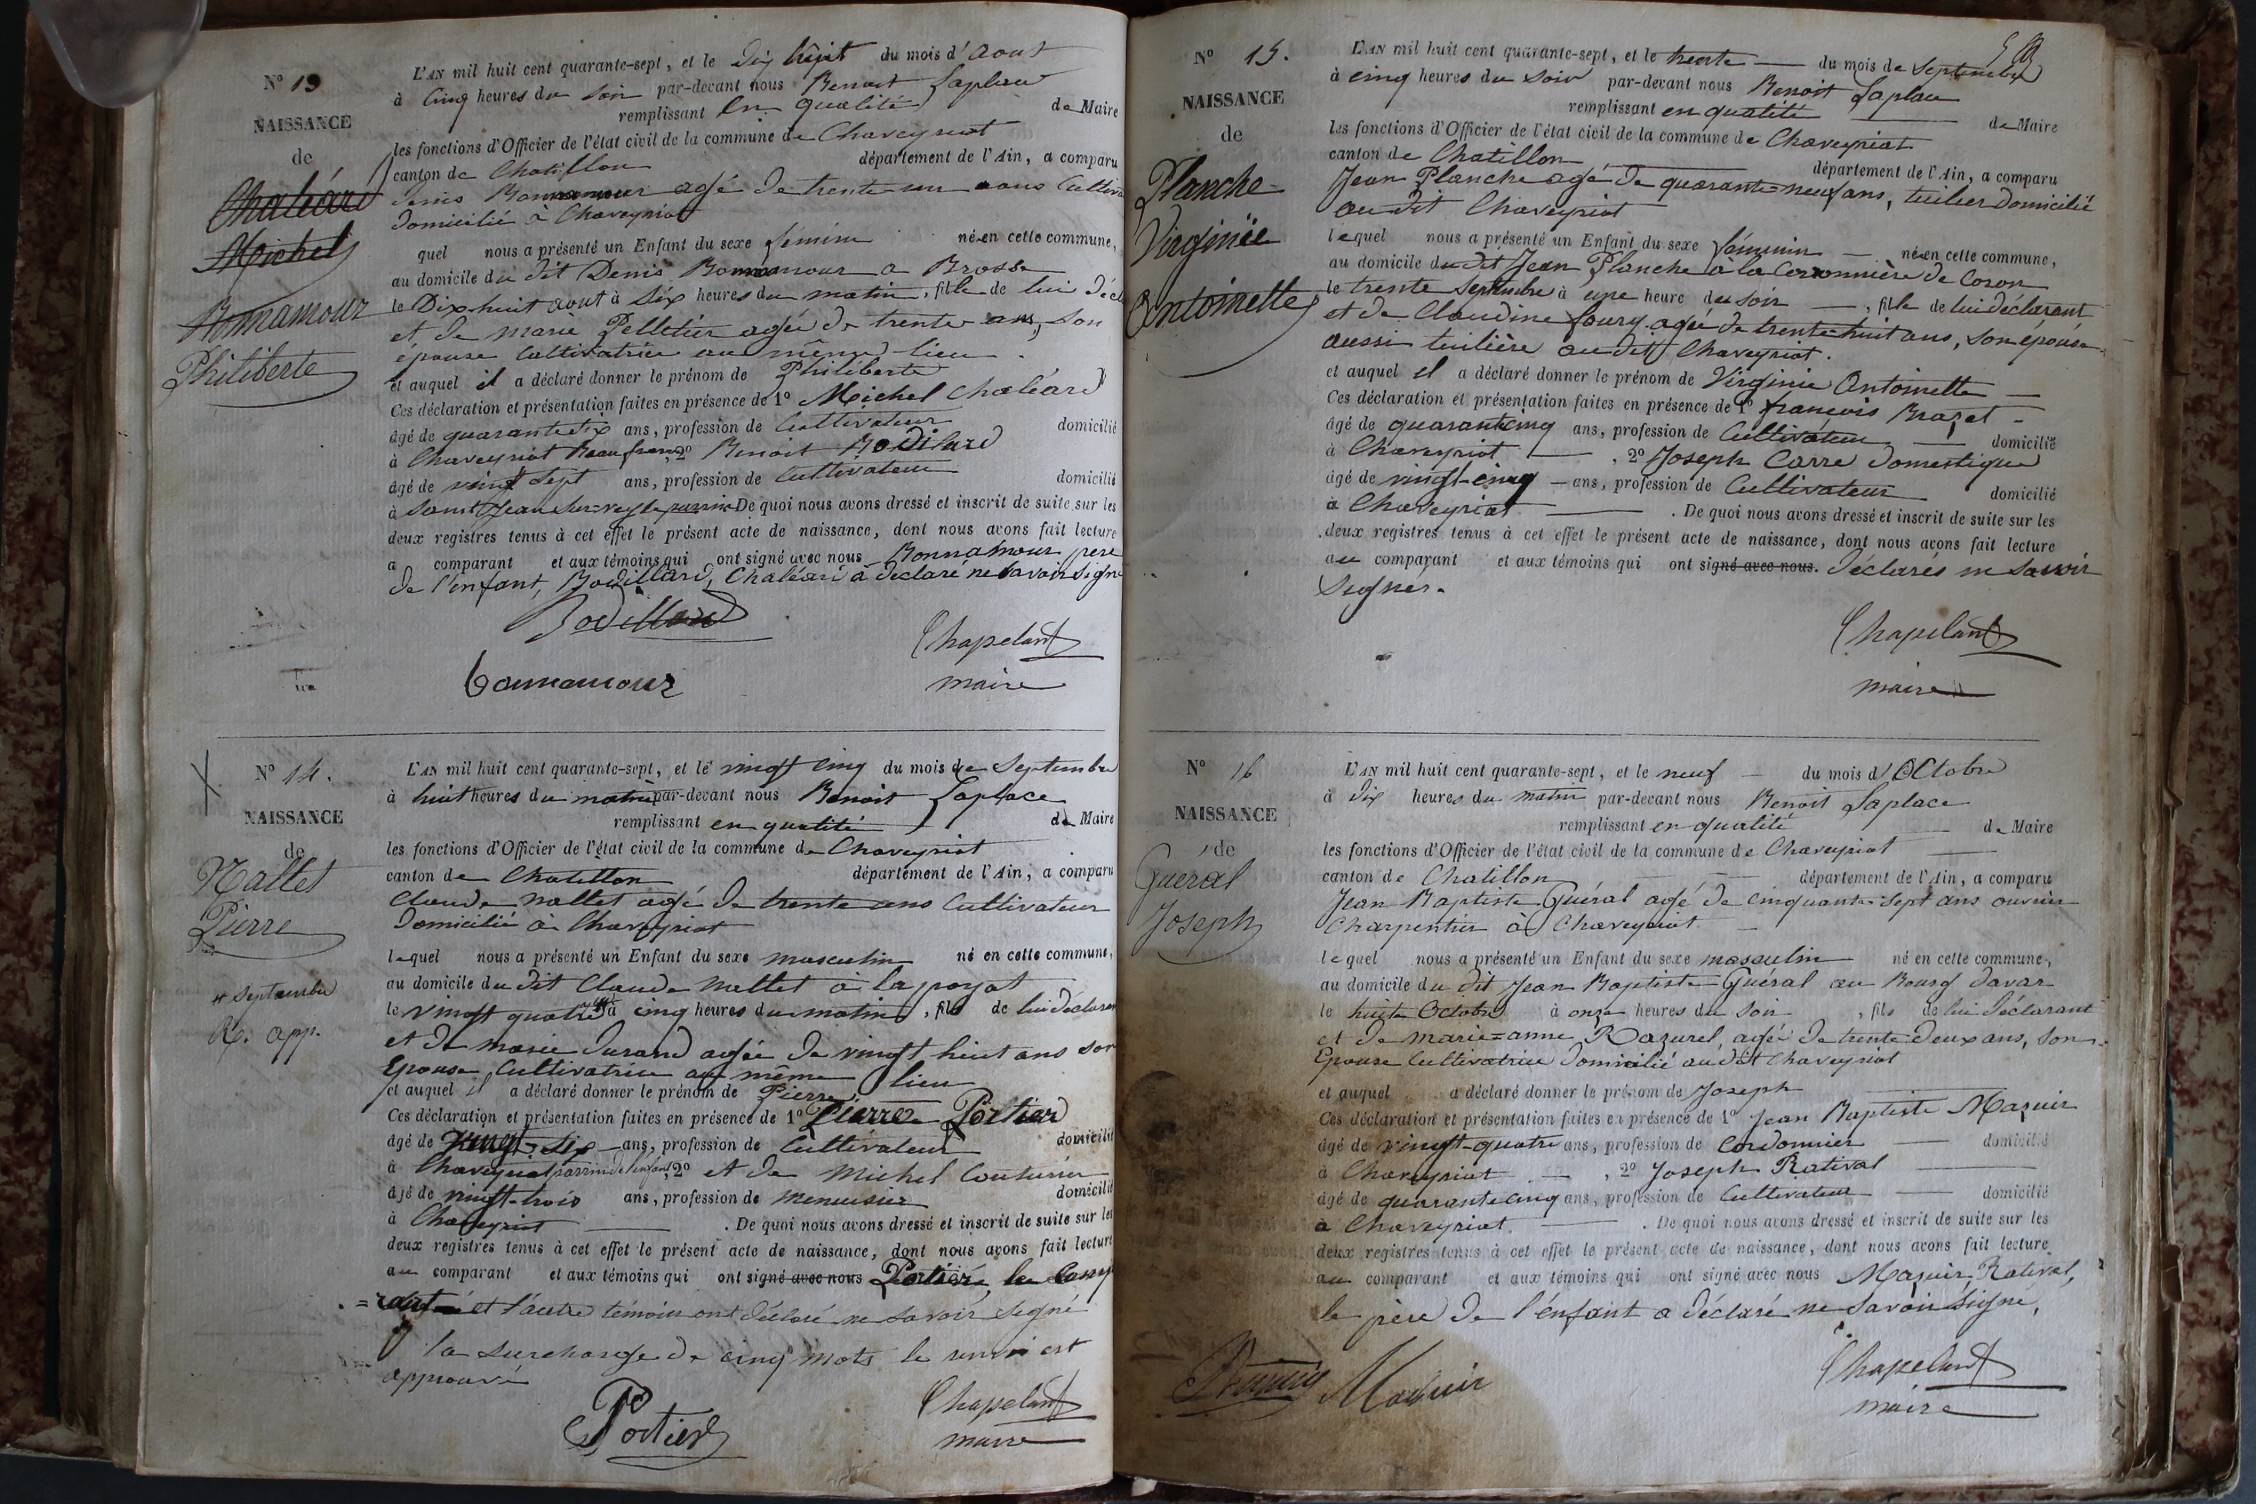 N° 13
NAISSANCE
de
Chaléard
Michel
Bonnamour
Philiberte
L'AN mil huit cent quarante-sept, et le Dix huit du mois d'aout
à Cinq heures du soir par-devant nous Benoit Laplace
remplissant en qualité de Maire
les fonctions d'Officier de l'état civil de la commune de Chaveyriat
canton de Chatillon département de l'Ain, a comparu
Denis Bonnamour agé de trente un ans Cultiva
Domicilié à Chaveyriat
quel nous a présenté un Enfant du sexe féminin né en cette commune,
au domicile du dit Denis Bonnamour a Brosse
le Dix huit aout à six heures du matin, fille de lui décl
et de marie Pelletier agée de trente ans, son
épouse Cultivatrice au même lieu.
et auquel il a déclaré donner le prénom de Philiberte
Ces déclaration et présentation faites en présence de 1° Michel Chaléard
âgé de quarante dix ans, profession de Cultivateur domicilié
à Chaveyriat 2° Benoit Bodillard
âgé de vingt sept ans, profession de Cultivateur domicilié
à Saint Jean sur veyle parrain De quoi nous avons dressé et inscrit de suite sur les
deux registres tenus à cet effet le présent acte de naissance, dont nous avons fait lecture
a comparant et aux témoins qui ont signé avec nous Bonnamour pere
de l'enfant, Bodillard, Chaléard à déclaré ne savoir signe
Bodillard
Chapelant
bonnamour
maire
N° 14.
NAISSANCE
de
Nallet
Pierre
4 Septembre
R. app.
L'AN mil huit cent quarante-sept, et le vingt cinq du mois de Septembre
à huit heures du matin par-devant nous Benoit Laplace
remplissant en qualité de Maire
les fonctions d'Officier de l'état civil de la commune de Chaveyriat
canton de Chatillon département de l'Ain, a comparu
Claude Nallet agé de trente ans Cultivateur
Domicilié à Chaveyriat
lequel nous a présenté un Enfant du sexe masculin né en cette commune,
au domicile du dit Claude Nallet à la poyat
le vingt quatre à cinq heures du matin, fils de lui déclaran
et de marie Durand agée de vingt huit ans son
Epouse Cultivatrice au même lieu
et auquel il a déclaré donner le prénom de Pierre
Ces déclaration et présentation faites en présence de 1° Pierre Portier
âgé de vingt-six ans, profession de Cultivateur domicilié
à Chaveyriat parrain de l'enfant, 2° et de Michel Couturier
âgé de vingt-trois ans, profession de menuisier domicilié
à Chaveyriat. De quoi nous avons dressé et inscrit de suite sur les
deux registres tenus à cet effet le présent acte de naissance, dont nous avons fait lecture
au comparant et aux témoins qui ont signé avec nous Portier, le Comp
=arant et l'autre témoin ont déclaré ne savoir signé
la surcharge de cinq mots le est
approuvé
Portier
Chapelant
maire
N° 15.
NAISSANCE
de
Planche
Virginie
Antoinette
L'AN mil huit cent quarante-sept, et le trente du mois de Septembre
à cinq heures du soir par-devant nous Benoit Laplace
remplissant en qualité de Maire
les fonctions d'Officier de l'état civil de la commune de Chaveyriat
canton de Chatillon département de l'Ain, a comparu
Jean Planche agé de quarante-neuf ans, tuilier domicilié
au dit Chaveyriat
lequel nous a présenté un Enfant du sexe féminin né en cette commune,
au domicile du dit Jean Planche à la Corronnière de Coron
le trente Septembre à une heure du soir, fille de lui déclarant
et de Claudine foury agée de trente huit ans, son épouse
aussi tuilière au dit Chaveyriat.
et auquel il a déclaré donner le prénom de Virginie Antoinette
Ces déclaration et présentation faites en présence de 1° françois Brazet
âgé de quarante cinq ans, profession de Cultivateur domicilié
à Chaveyriat, 2° Joseph Carre domestique
âgé de vingt-cinq ans, profession de Cultivateur domicilié
à Chaveyriat. De quoi nous avons dressé et inscrit de suite sur les
deux registres tenus à cet effet le présent acte de naissance, dont nous avons fait lecture
au comparant et aux témoins qui ont signé avec nous. déclarés ne savoir
signer.
Chapelant
maire
N° 16
NAISSANCE
de
Guéral
Joseph
L'AN mil huit cent quarante-sept, et le neuf du mois d'Octobre
à dix heures du matin par-devant nous Benoit Laplace
remplissant en qualité de Maire
les fonctions d'Officier de l'état civil de la commune de Chaveyriat
canton de Chatillon département de l'Ain, a comparu
Jean Baptiste Guéral agé de cinquante-sept ans ouvrier
Charpentier à Chaveyriat
lequel nous a présenté un Enfant du sexe masculin né en cette commune,
au domicile du dit Jean Baptiste Guéral au Bourg davar
le huit Octobre à onze heures du soir, fils de lui déclarant
et de marie=anne Razurel, agée de trente deux ans, son
Epouse Cultivatrice domicilié au dit Chaveyriat
et auquel a déclaré donner le prénom de Joseph
Ces déclaration et présentation faites en présence de 1° Jean Baptiste Mazuir
âgé de vingt-quatre ans, profession de Cordonnier domicilié
à Chaveyriat, 2° Joseph Ratival
âgé de quarante cinq ans, profession de Cultivateur domicilié
à Chaveyriat. De quoi nous avons dressé et inscrit de suite sur les
deux registres tenus à cet effet le présent acte de naissance, dont nous avons fait lecture
au comparant et aux témoins qui ont signé avec nous Mazuir, Ratival,
le père de l'enfant a déclaré ne savoir signé,
Mazuir
Chapelant
maire